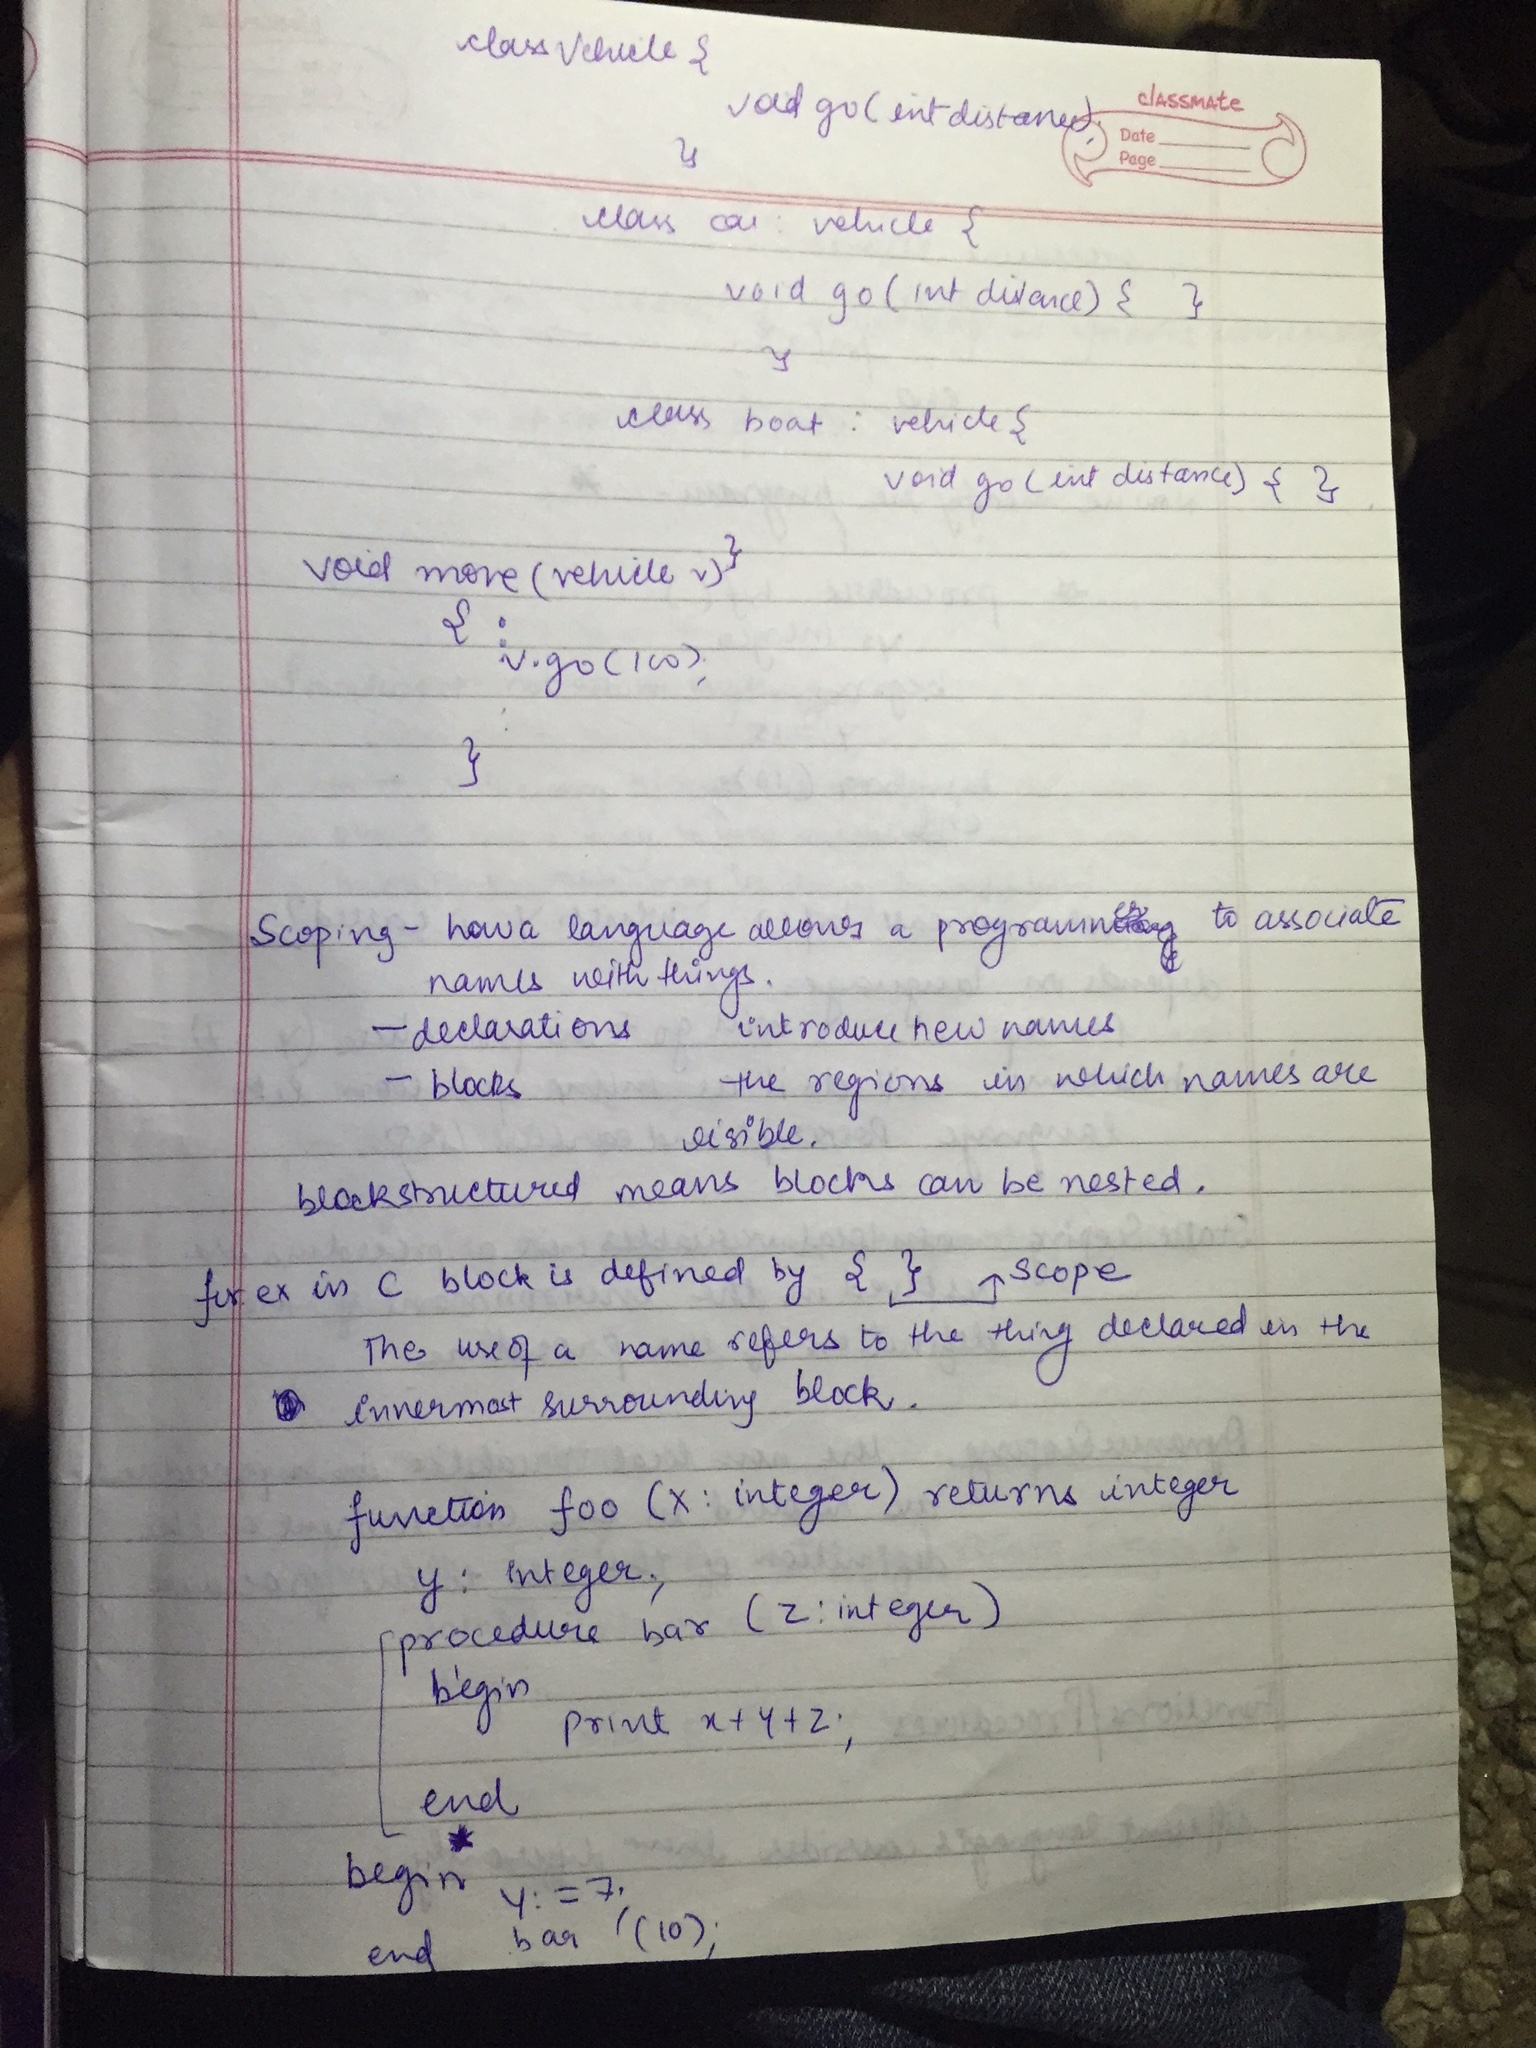 class Vehicle {
void go(int distance);
}
classmate
Date
Page
class car : vehicle {
void go(int distance) { }
}
class boat : vehicle {
void go(int distance) { }
}
void move(vehicle v)
{ :
v.go(100);
:
}
Scoping - how a language allows a programmer to associate
names with things.
- declarations introduce new names
- blocks the regions in which names are
visible.
blockstructured means blocks can be nested.
for ex in C block is defined by { } scope
The use of a name refers to the thing declared in the
innermost surrounding block.
function foo (x : integer) returns integer
y : integer;
procedure bar (z : integer)
begin
print x+y+z;
end
begin
y := 7;
bar (10);
end